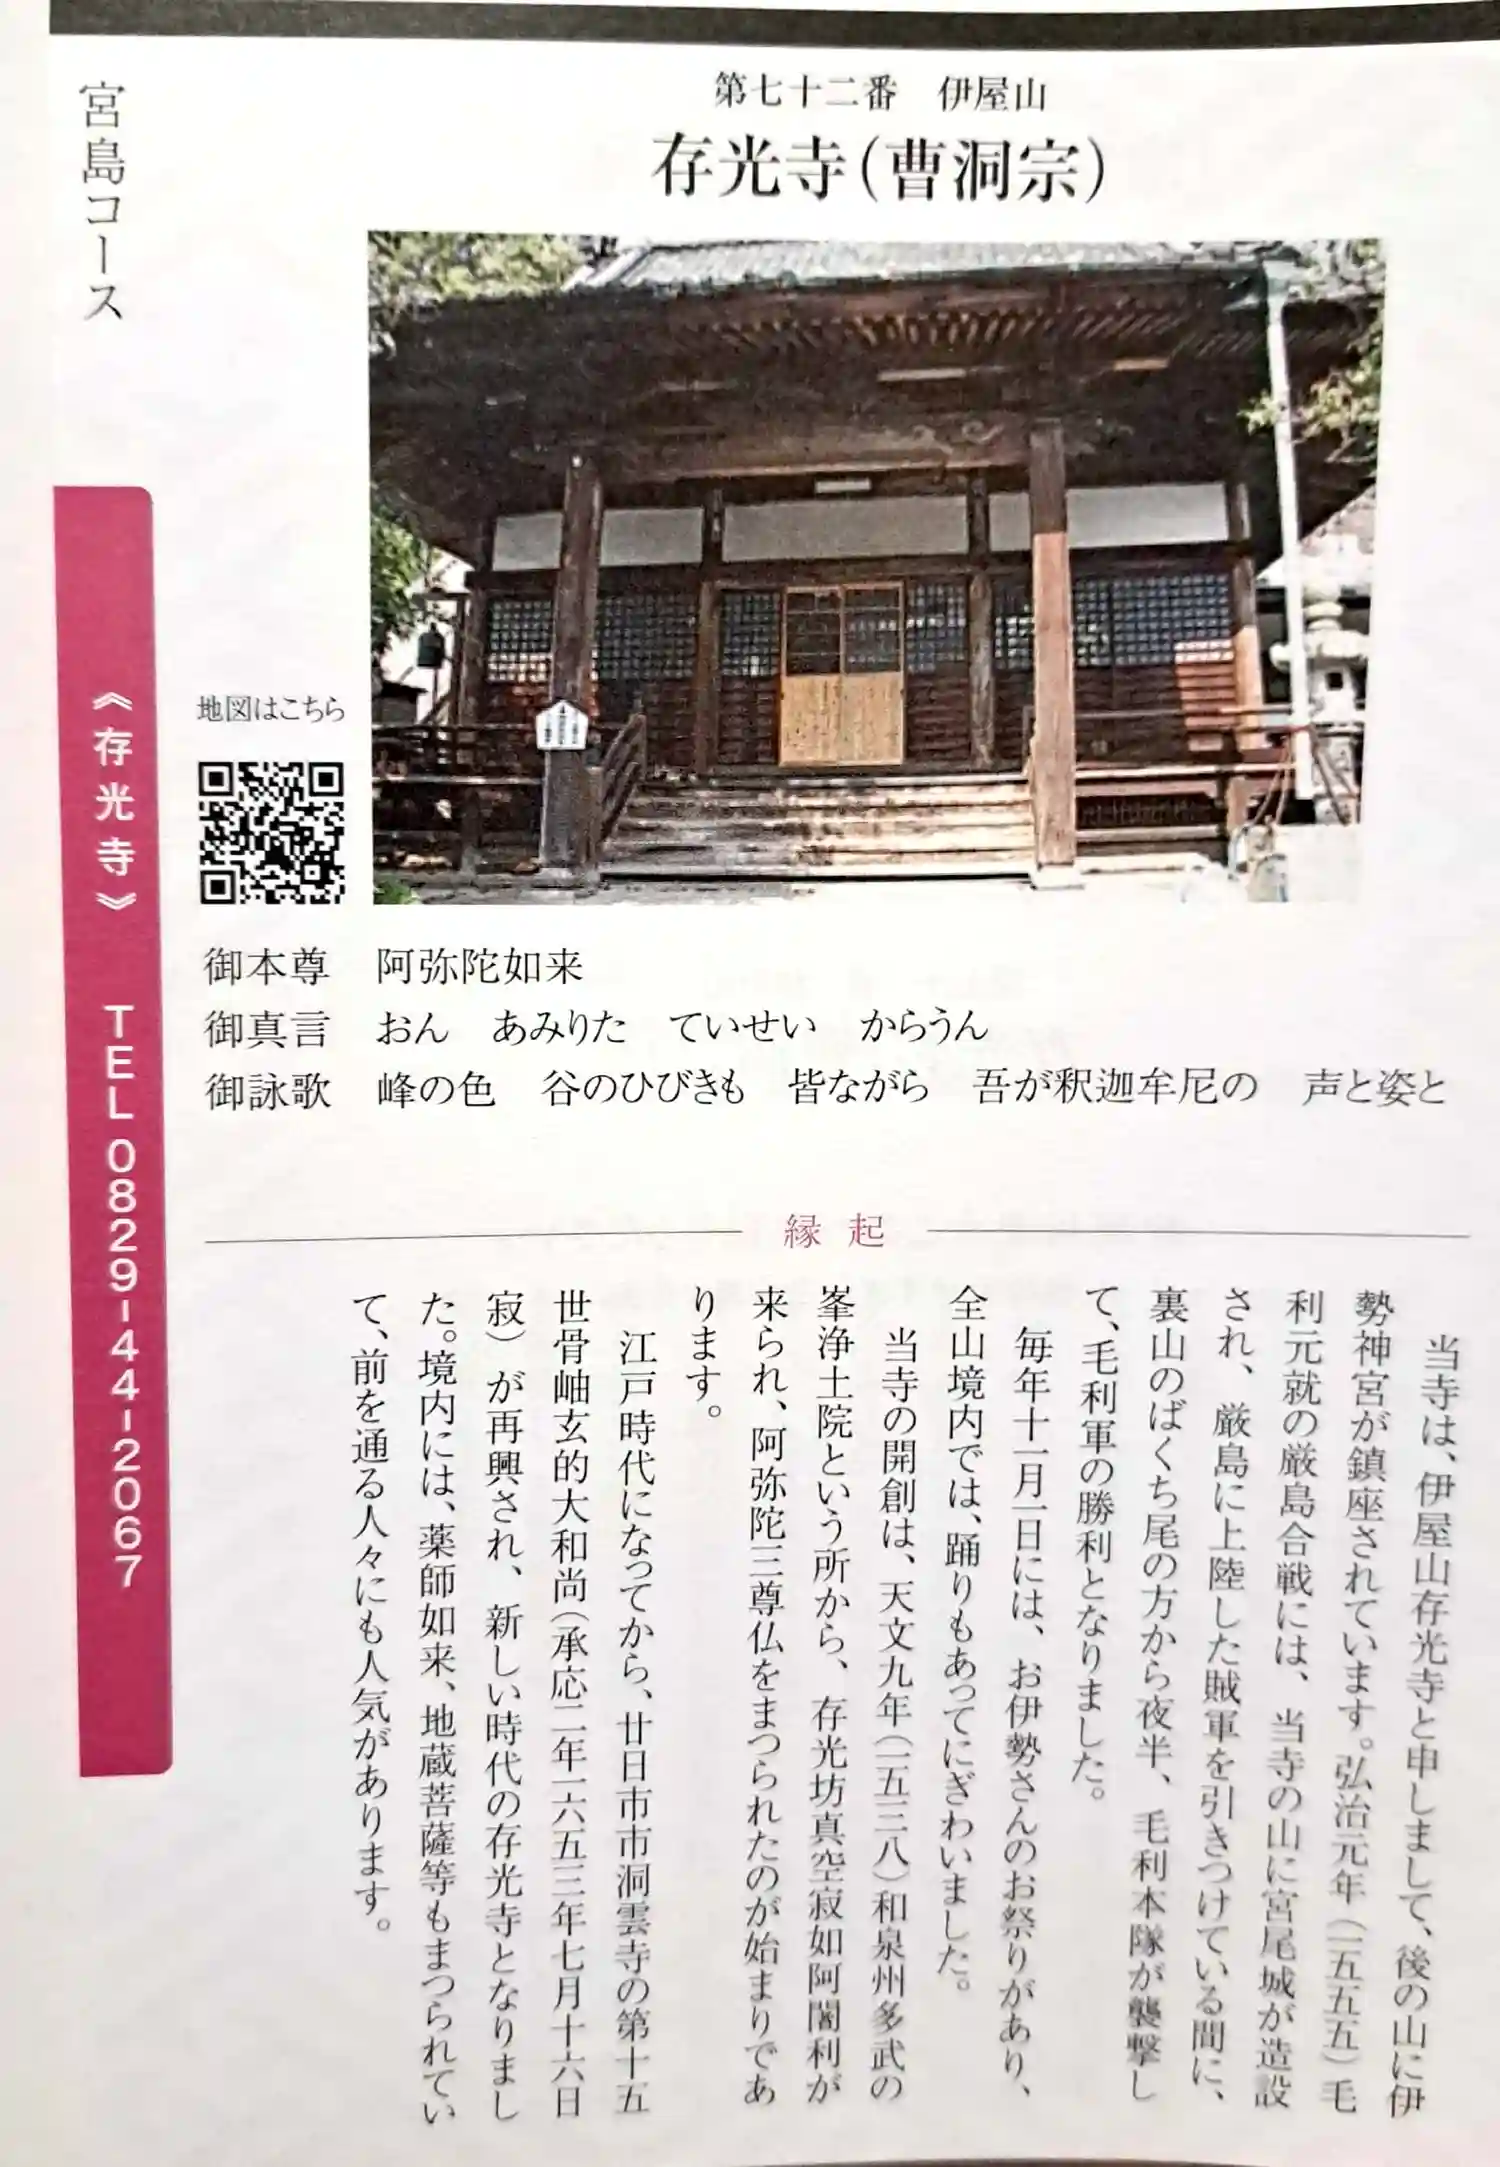 宮島コース
第七十二番　伊屋山
存光寺（曹洞宗）
地図はこちら
《存光寺》　TEL 0829-44-2067
御本尊　阿弥陀如来
御真言　おん　あみりた　ていせい　からうん
御詠歌　峰の色　谷のひびきも　皆ながら　吾が釈迦牟尼の　声と姿と
縁起
当寺は、伊屋山存光寺と申しまして、後の山に伊
勢神宮が鎮座されています。弘治元年（一五五五）毛
利元就の厳島合戦には、当寺の山に宮尾城が造設
され、厳島に上陸した賊軍を引きつけている間に、
裏山のばくち尾の方から夜半、毛利本隊が襲撃し
て、毛利軍の勝利となりました。
毎年十一月一日には、お伊勢さんのお祭りがあり、
全山境内では、踊りもあってにぎわいました。
当寺の開創は、天文九年（一五三八）和泉州多武の
峯浄土院という所から、存光坊真空寂如阿闍利が
来られ、阿弥陀三尊仏をまつられたのが始まりであ
ります。
江戸時代になってから、廿日市市洞雲寺の第十五
世骨岫玄的大和尚（承応二年一六五三年七月十六日
寂）が再興され、新しい時代の存光寺となりまし
た。境内には、薬師如来、地蔵菩薩等もまつられてい
て、前を通る人々にも人気があります。